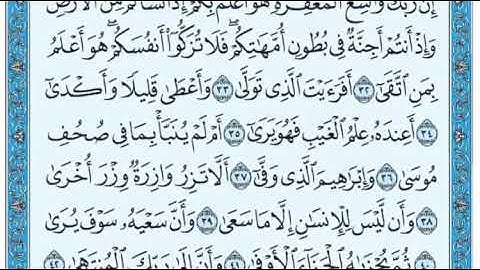 إِنَّ رَبَّكَ وَاسِعُ الْمَغْفِرَةِ هُوَ أَعْلَمُ بِكُمْ إِذْ أَنشَأَكُم مِّنَ الْأَرْضِ
وَإِذْ أَنتُمْ أَجِنَّةٌ فِي بُطُونِ أُمَّهَاتِكُمْ فَلَا تُزَكُّوا أَنفُسَكُمْ هُوَ أَعْلَمُ
بِمَنِ اتَّقَىٰ ٣٢ أَفَرَأَيْتَ الَّذِي تَوَلَّىٰ ٣٣ وَأَعْطَىٰ قَلِيلًا وَأَكْدَىٰ
٣٤ أَعِندَهُ عِلْمُ الْغَيْبِ فَهُوَ يَرَىٰ ٣٥ أَمْ لَمْ يُنَبَّأْ بِمَا فِي صُحُفِ
مُوسَىٰ ٣٦ وَإِبْرَاهِيمَ الَّذِي وَفَّىٰ ٣٧ أَلَّا تَزِرُ وَازِرَةٌ وِزْرَ أُخْرَىٰ
٣٨ وَأَن لَّيْسَ لِلْإِنسَانِ إِلَّا مَا سَعَىٰ ٣٩ وَأَنَّ سَعْيَهُ سَوْفَ يُرَىٰ
٤٠ ثُمَّ يُجْزَاهُ الْجَزَاءَ الْأَوْفَىٰ ٤١ وَأَنَّ إِلَىٰ رَبِّكَ الْمُنتَهَىٰ ٤٢